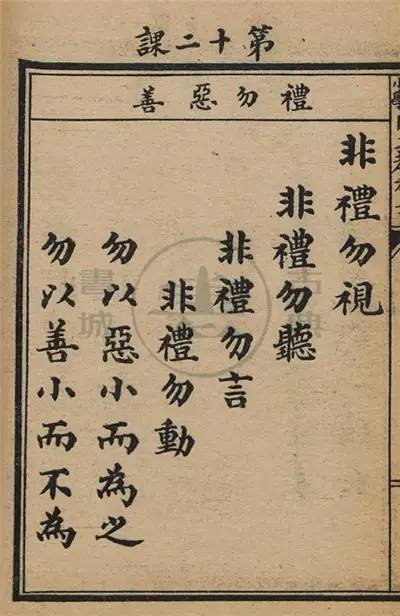 第十二課
禮勿惡善
非禮勿視
非禮勿聽
非禮勿言
非禮勿動
勿以惡小而為之
勿以善小而不為
古典
書城